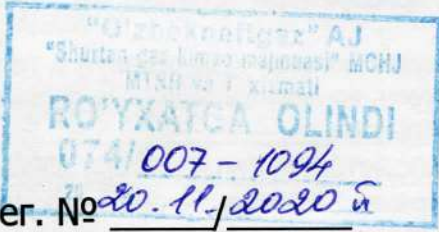 "O'zbekneftgaz" AJ
"Shurtan gaz kimyo majmuasi" MCHJ
RO'YXATGA OLINDI
074/007-1094
er. № 20.11./2020 й